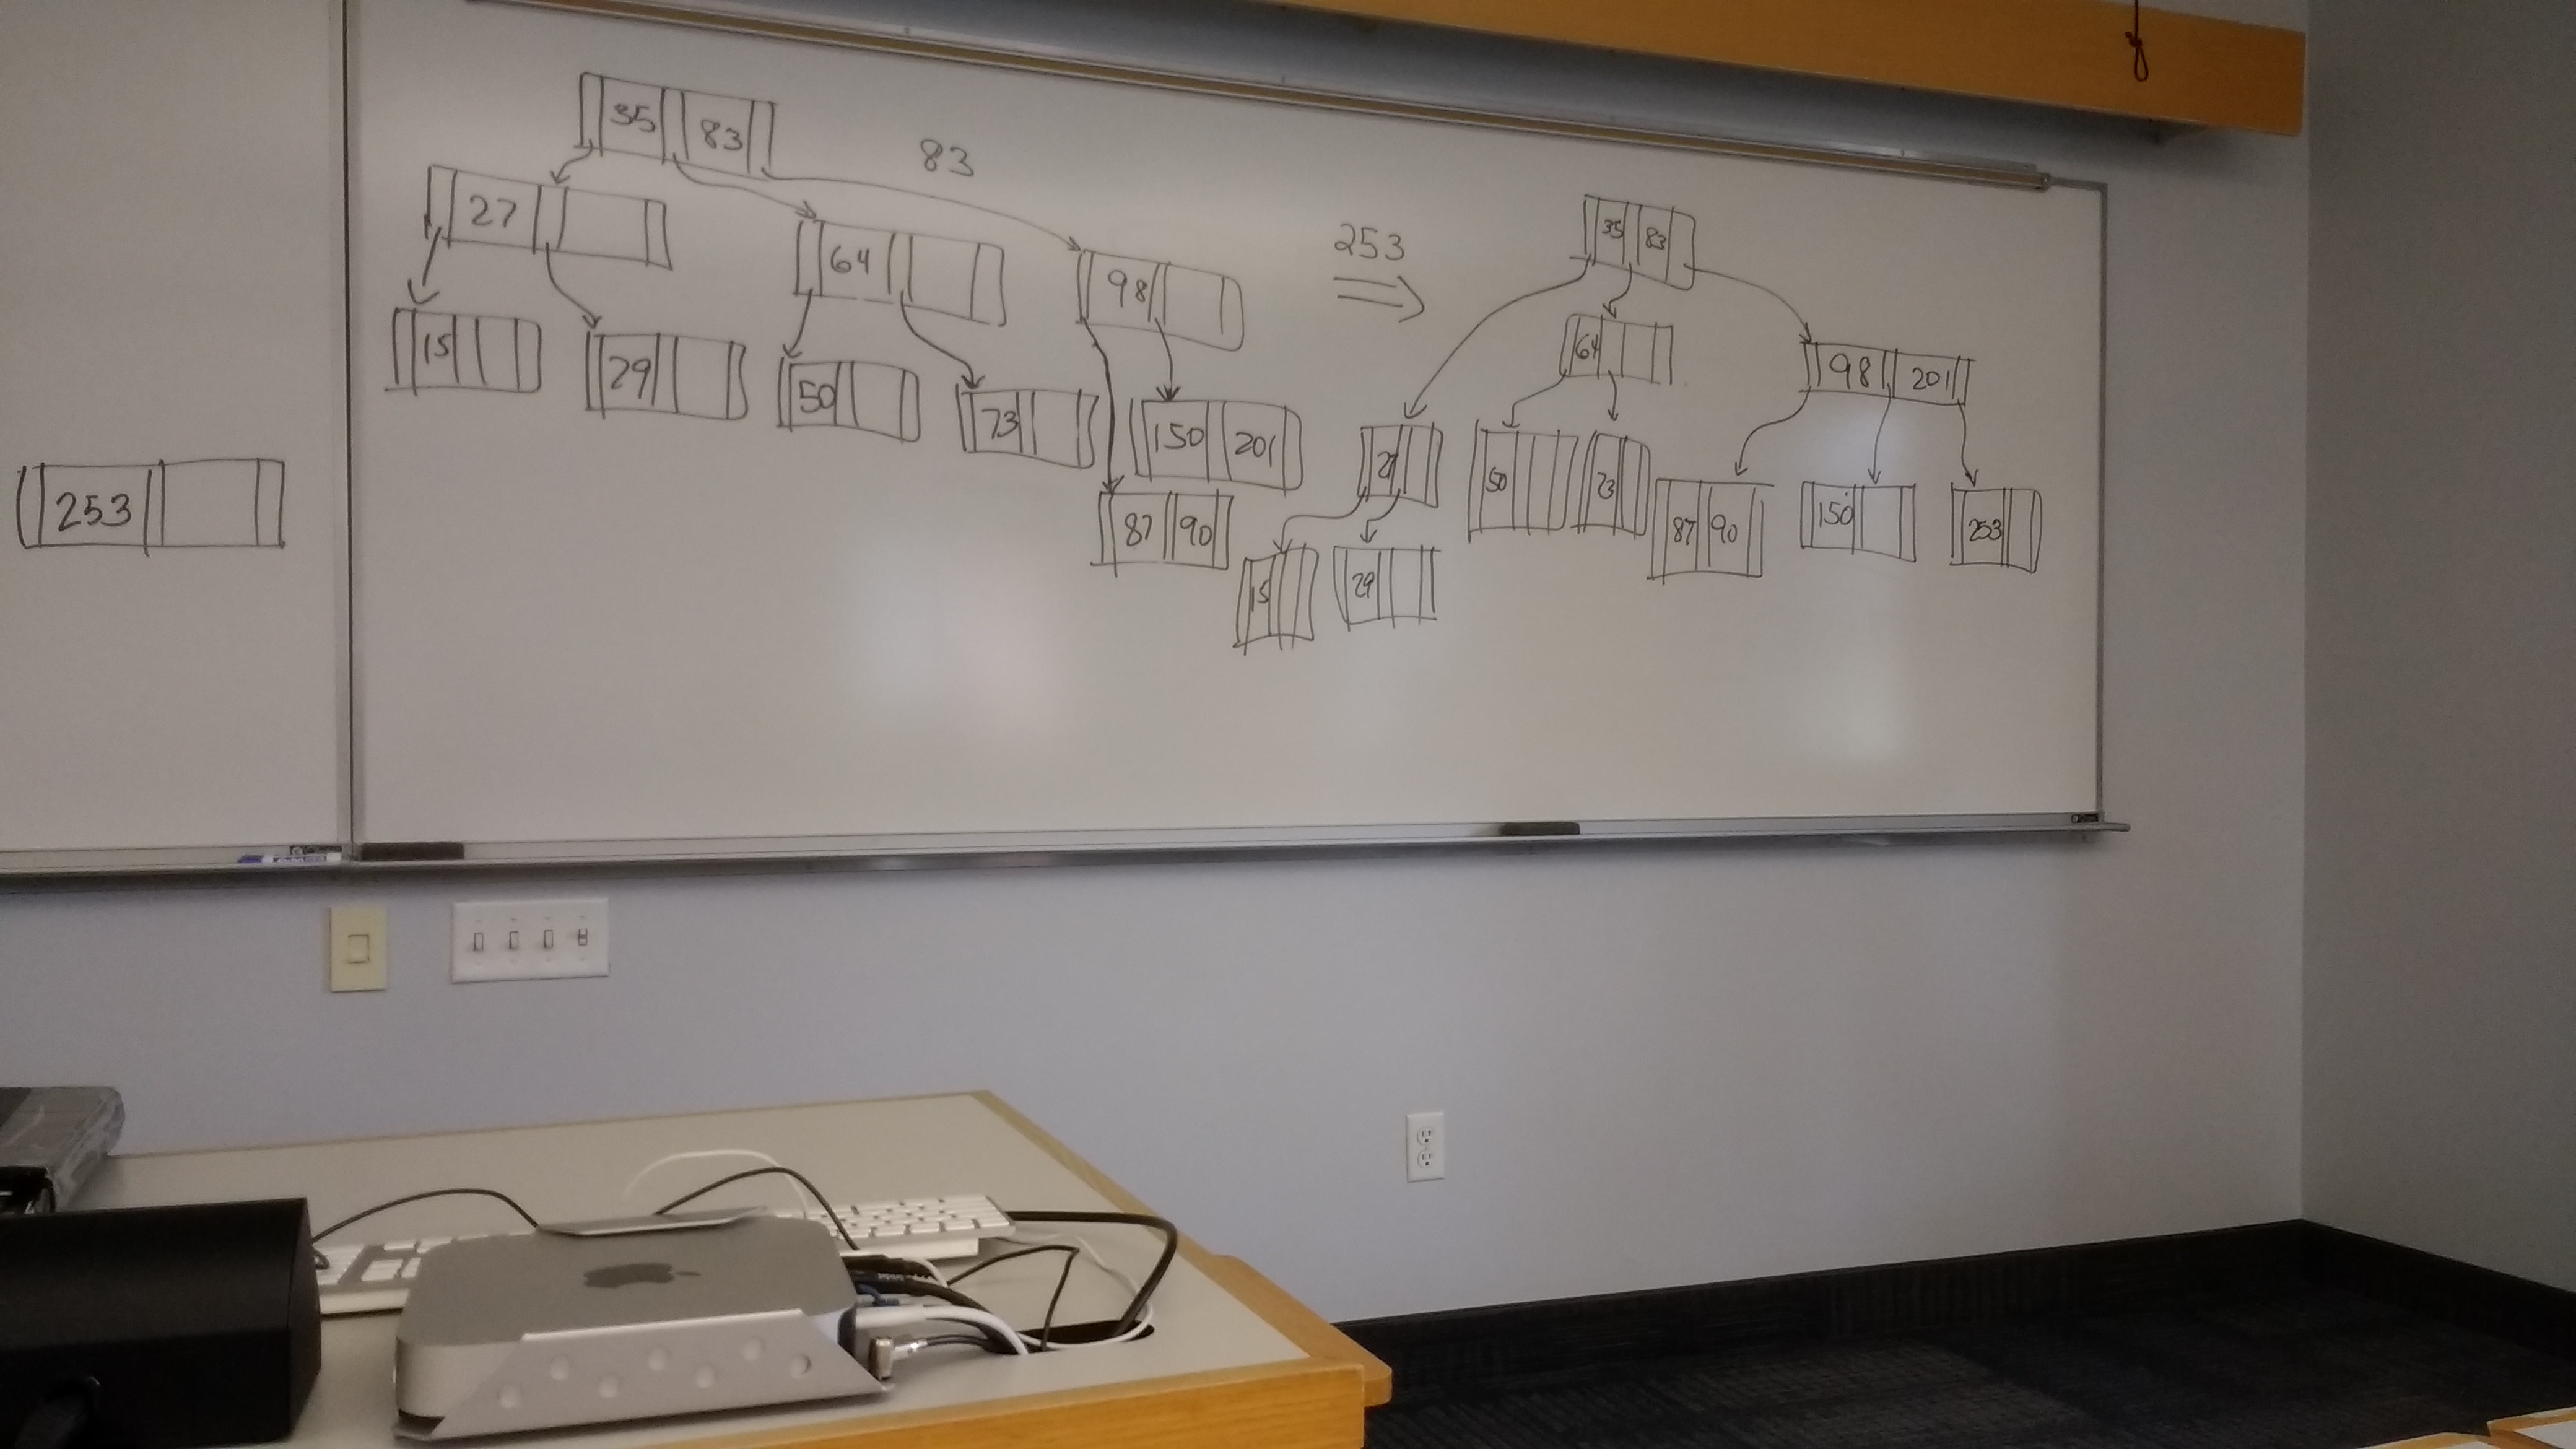 35 83
83
27
64
98
15
29
50
73
150 201
87 90
253
253
35 83
64
98 201
27
50
73
87 90
150
253
15
29